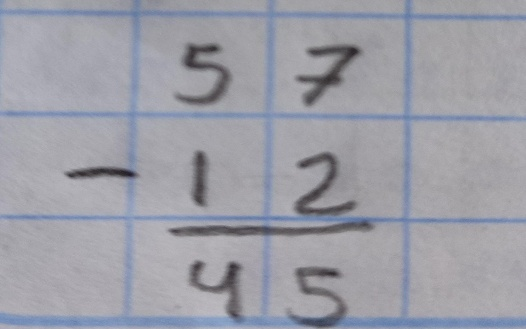 57
- 12
45